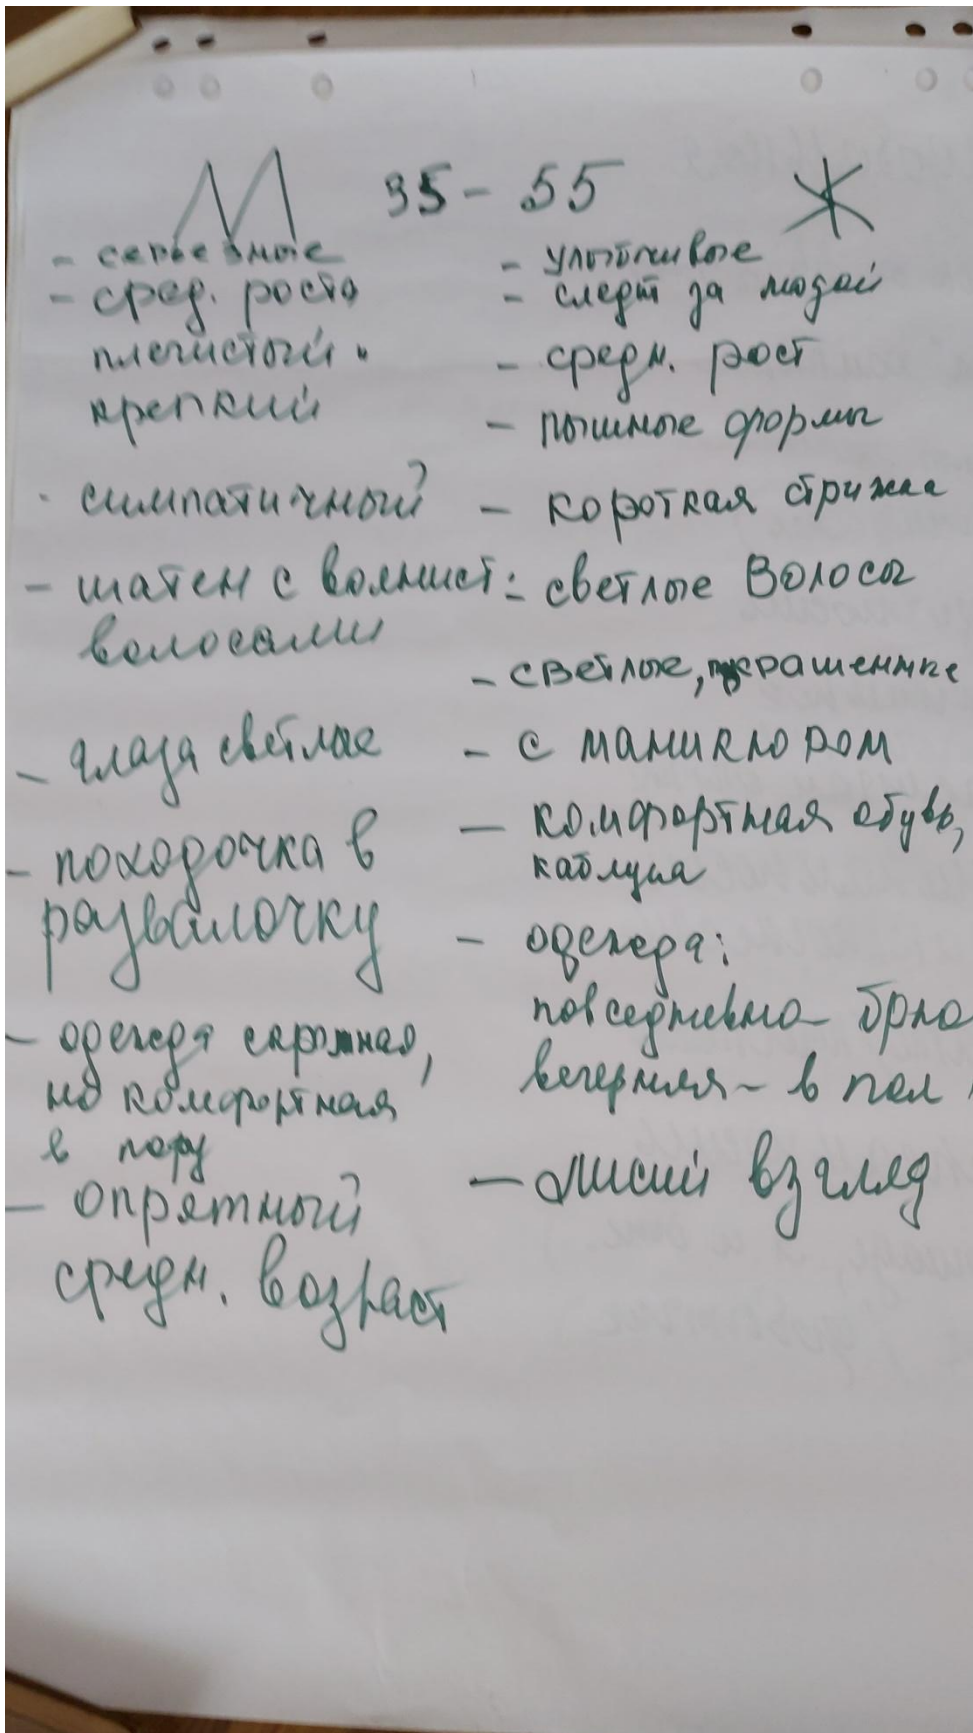 М 35 - 55 Ж
- серьезные
- сред. роста
плечистый
крепкий
- симпатичный
- шатен с волнист.
волосами
- глаза светлые
- походочка в
развалочку
- одежда скромная,
но комфортная
в пару
- опрятный
средн. возраст
- улыбчивые
- следят за модой
- средн. рост
- пышные формы
- короткая стрижка
- светлые волосы
- светлые, крашенные
- с маникюром
- комфортная обувь,
каблука
- одежда:
повседневно
вечерняя - в пол
- лисий взгляд